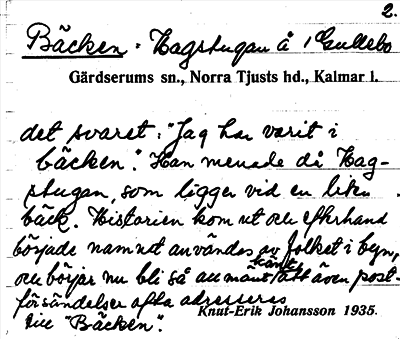 2.
Bäcken = Hagstugan å 1 Gullebo
Gärdserums sn., Norra Tjusts hd., Kalmar l.
det svaret: "Jag har varit i
bäcken." Han menade då Hag-
stugan, som ligger vid en liten
bäck. Historien kom ut och efterhand
började namnet användas av folket i byn,
och börjar nu bli så allmänt känt att även post-
försändelser ofta adresseras
till "Bäcken".
Knut-Erik Johansson 1935.